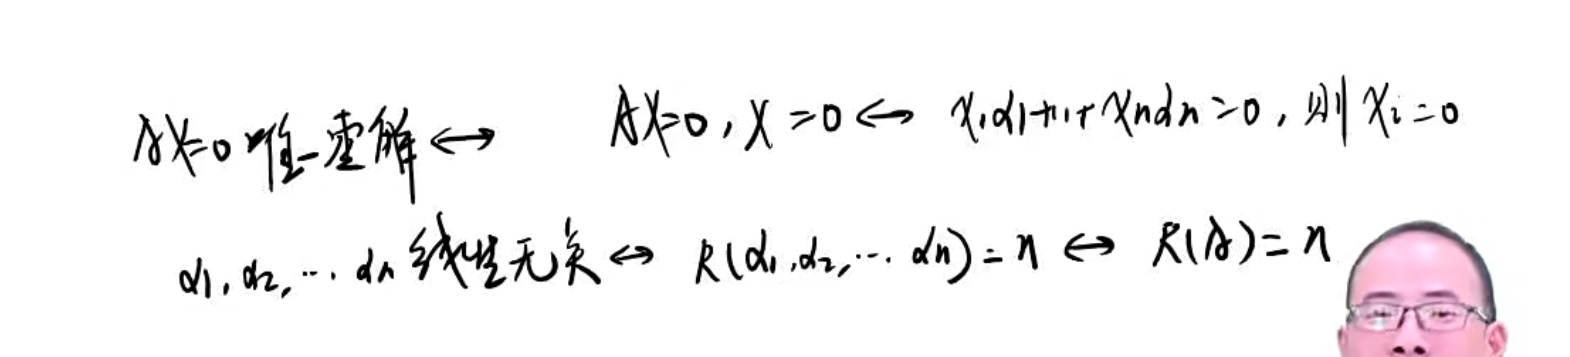 AX=0 唯一零解 ↔ AX=0, X=0 ↔ x₁α₁+…+xₙαₙ=0, 则 xᵢ=0
α₁, α₂, … αₙ 线性无关 ↔ R(α₁, α₂, … αₙ)=n ↔ R(A)=n